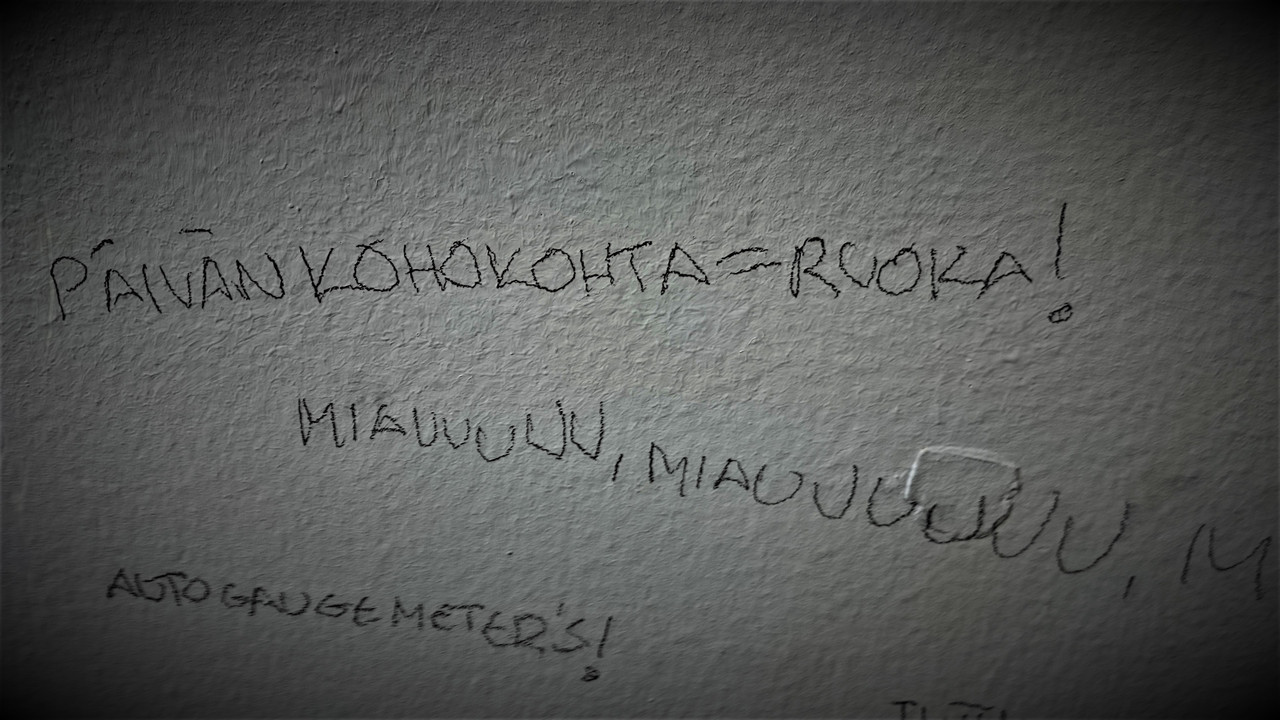 PÄIVÄN KOHOKOHTA = RUOKA!
MIAUUUUUU, MIAUUUUUUU, M
AUTOGAUGE METER'S!